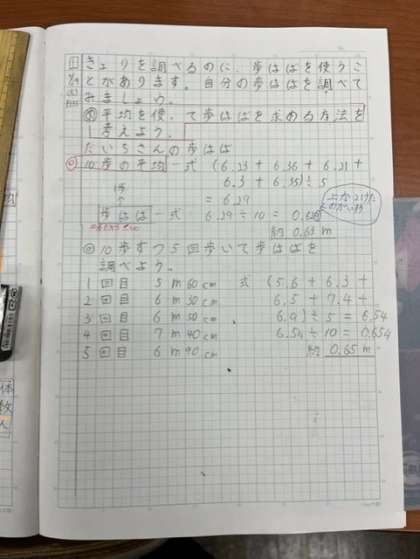 1 きょりを調べるのに、歩はばを使うこ
とがあります。自分の歩はばを調べて
みましょう。
平均を使って歩はばを求める方法を
考えよう。
たいちさんの歩はば
10歩の平均 式 (6.23+6.36+6.21+
6.3+6.35)÷5
=6.29
歩はば 式 6.29÷10=0.629
約0.63m
10歩ずつ5回歩いて歩はばを
調べよう。
1回目 5m60cm 式 (5.6+6.3+
2回目 6m30cm 6.5+7.4+
3回目 6m50cm 6.9)÷5=6.54
4回目 7m40cm 6.54÷10=0.654
5回目 6m90cm 約0.65m
体
数
人